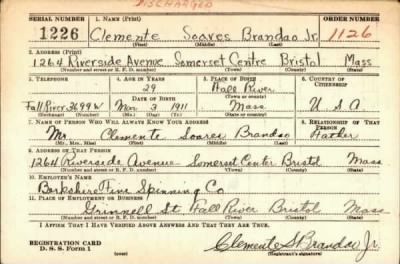 DISCHARGED
SERIAL NUMBER 1. NAME (Print) ORDER NUMBER
1226 Clemente Soares Brandao Jr. 1126
(First) (Middle) (Last)
2. ADDRESS (Print)
1264 Riverside Avenue Somerset Centre Bristol Mass
(Number and street or R. F. D. number) (Town) (County) (State)
3. TELEPHONE 4. AGE IN YEARS 5. PLACE OF BIRTH 6. COUNTRY OF CITIZENSHIP
29 Fall River
DATE OF BIRTH (Town or county)
Fall River 3699W Mar 3 1911 Mass U S A
(Exchange) (Number) (Mo.) (Day) (Yr.) (State or country)
7. NAME OF PERSON WHO WILL ALWAYS KNOW YOUR ADDRESS 8. RELATIONSHIP OF THAT PERSON
Mr. Clemente Soares Brandao Father
(Mr., Mrs., Miss) (First) (Middle) (Last)
9. ADDRESS OF THAT PERSON
1264 Riverside Avenue Somerset Center Bristol Mass
(Number and street or R. F. D. number) (Town) (County) (State)
10. EMPLOYER'S NAME
Berkshire Fine Spinning Co
11. PLACE OF EMPLOYMENT OR BUSINESS
Grinnell St Fall River Bristol Mass
(Number and street or R. F. D. number) (Town) (County) (State)
I AFFIRM THAT I HAVE VERIFIED ABOVE ANSWERS AND THAT THEY ARE TRUE.
REGISTRATION CARD
D. S. S. Form 1
Clemente S Brandao Jr.
(Registrant's signature)